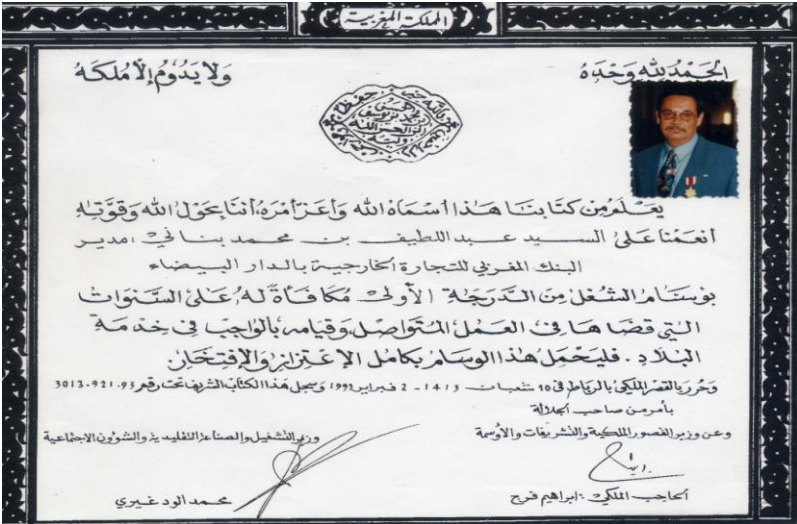 المملكة المغربية
الحَمْدُ لله وَحْدَهُ
وَلَا يَدُومُ إِلَّا مُلكُهُ
يَعْلَمُ مِن كتَابِنَا هَذَا أَسْمَاهُ الله وَأَعَزَّ أَمْرَهُ أَنَّنَا بِحَوْلِ الله وَقُوَّتِهِ
أَنْعَمْنَا عَلَى السيد عبد اللطيف بن محمد بناني، مدير
البنك المغربي للتجارة الخارجية بالدار البيضاء
بوِسَامِ الشغل مِنَ الدَّرَجَة الأولَى مُكَافَأَة لَهُ عَلَى السَّنَوَات
التِي قَضَاهَا فِي العَمَل المُتَوَاصِل وَقِيَامِه بِالوَاجِبِ فِي خِدْمَة
البِلَادِ. فَليَحْمِل هَذا الوِسَام بِكَامِل الإعْتِزاز وَالإفْتِخَارِ
وَحُرِّرَ بِالقصر الملكي بالرباط في 10 شعبان 1413 - 2 فبراير 1993 وسجل هذا الكتاب الشريف تحت رقم 3012.921.93
بأمر من صاحب الجلالة
وعن وزير القصور الملكية والتشريفات والأوسمة
وزير التشغيل والصناعة التقليدية والشؤون الاجتماعية
الحاجب الملكي: ابراهيم فرج
محمد الودغيري